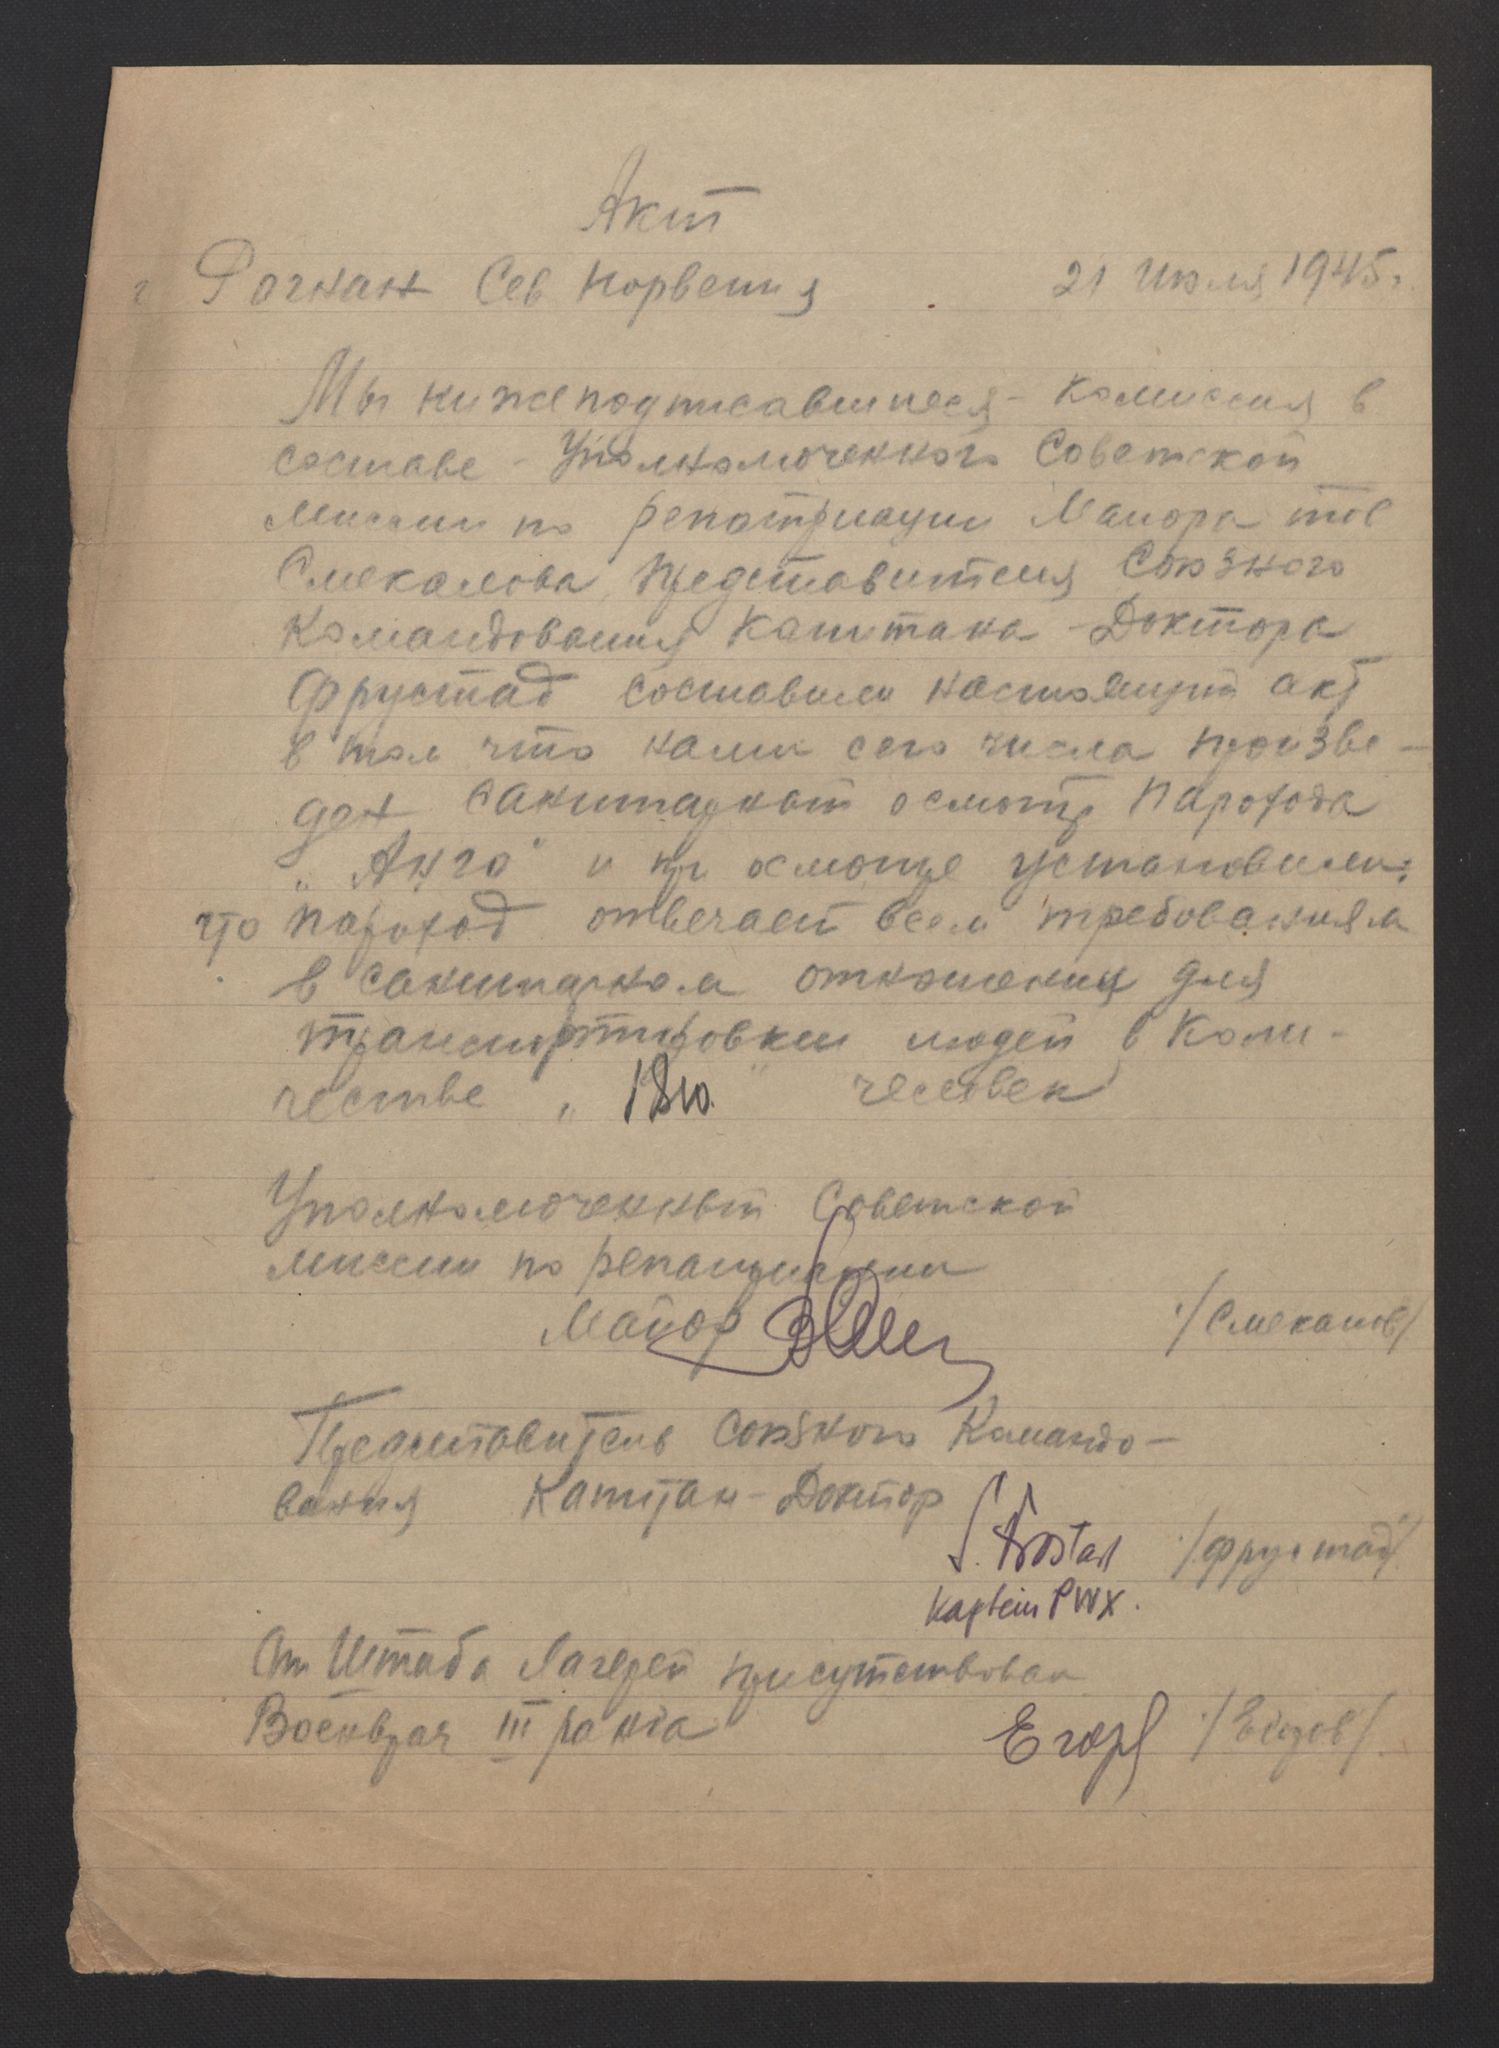 Акт
г Рогнан Сев Норвегия 21 Июля 1945г.
Мы нижеподписавшиеся - комиссия в
составе - Уполномоченного Советской
миссии по репатриации Майора тов
Смекалова, представителя Союзного
Командования Капитана - Доктора
Фрустад составили настоящий акт
в том что нами сего числа произве-
ден санитарный осмотр парохода
„Анго" и при осмотре установили:
что пароход отвечает всем требованиям
в санитарном отношении для
транспортировки людей в коли-
честве „ " человек
Уполномоченный Советской
миссии по репатриации
Майор /Смекалов/
Представитель Союзного Командо-
вания Капитан - Доктор
/Фрустад/
Kaptein PWX.
От Штаба Лагерей присутствовал
Военврач III ранга Егор /Егоров/